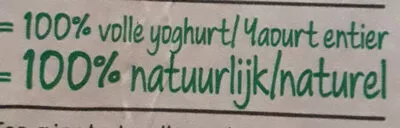 = 100% volle yoghurt/Yaourt entier
= 100% natuurlijk/naturel